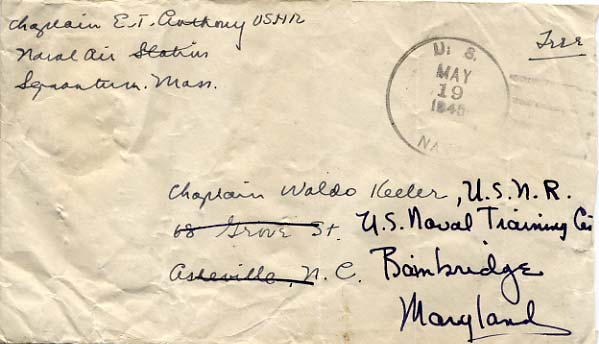 Chaplain E.T. Anthony USNR
Naval Air Station
Squantum. Mass.
Free
U. S.
MAY
19
1945
NA
Chaplain Waldo Keeler, U.S.N.R.
68 Grove St. U.S. Naval Training Cen
Asheville, N.C. Bainbridge
Maryland